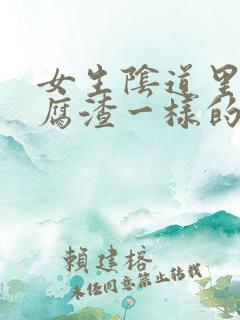 女生陰道里
腐渣一樣的
賴建榕
未经同意禁止转载